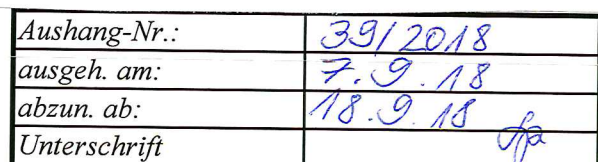 Aushang-Nr.: 39/2018
ausgeh. am: 7.9.18
abzun. ab: 18.9.18
Unterschrift